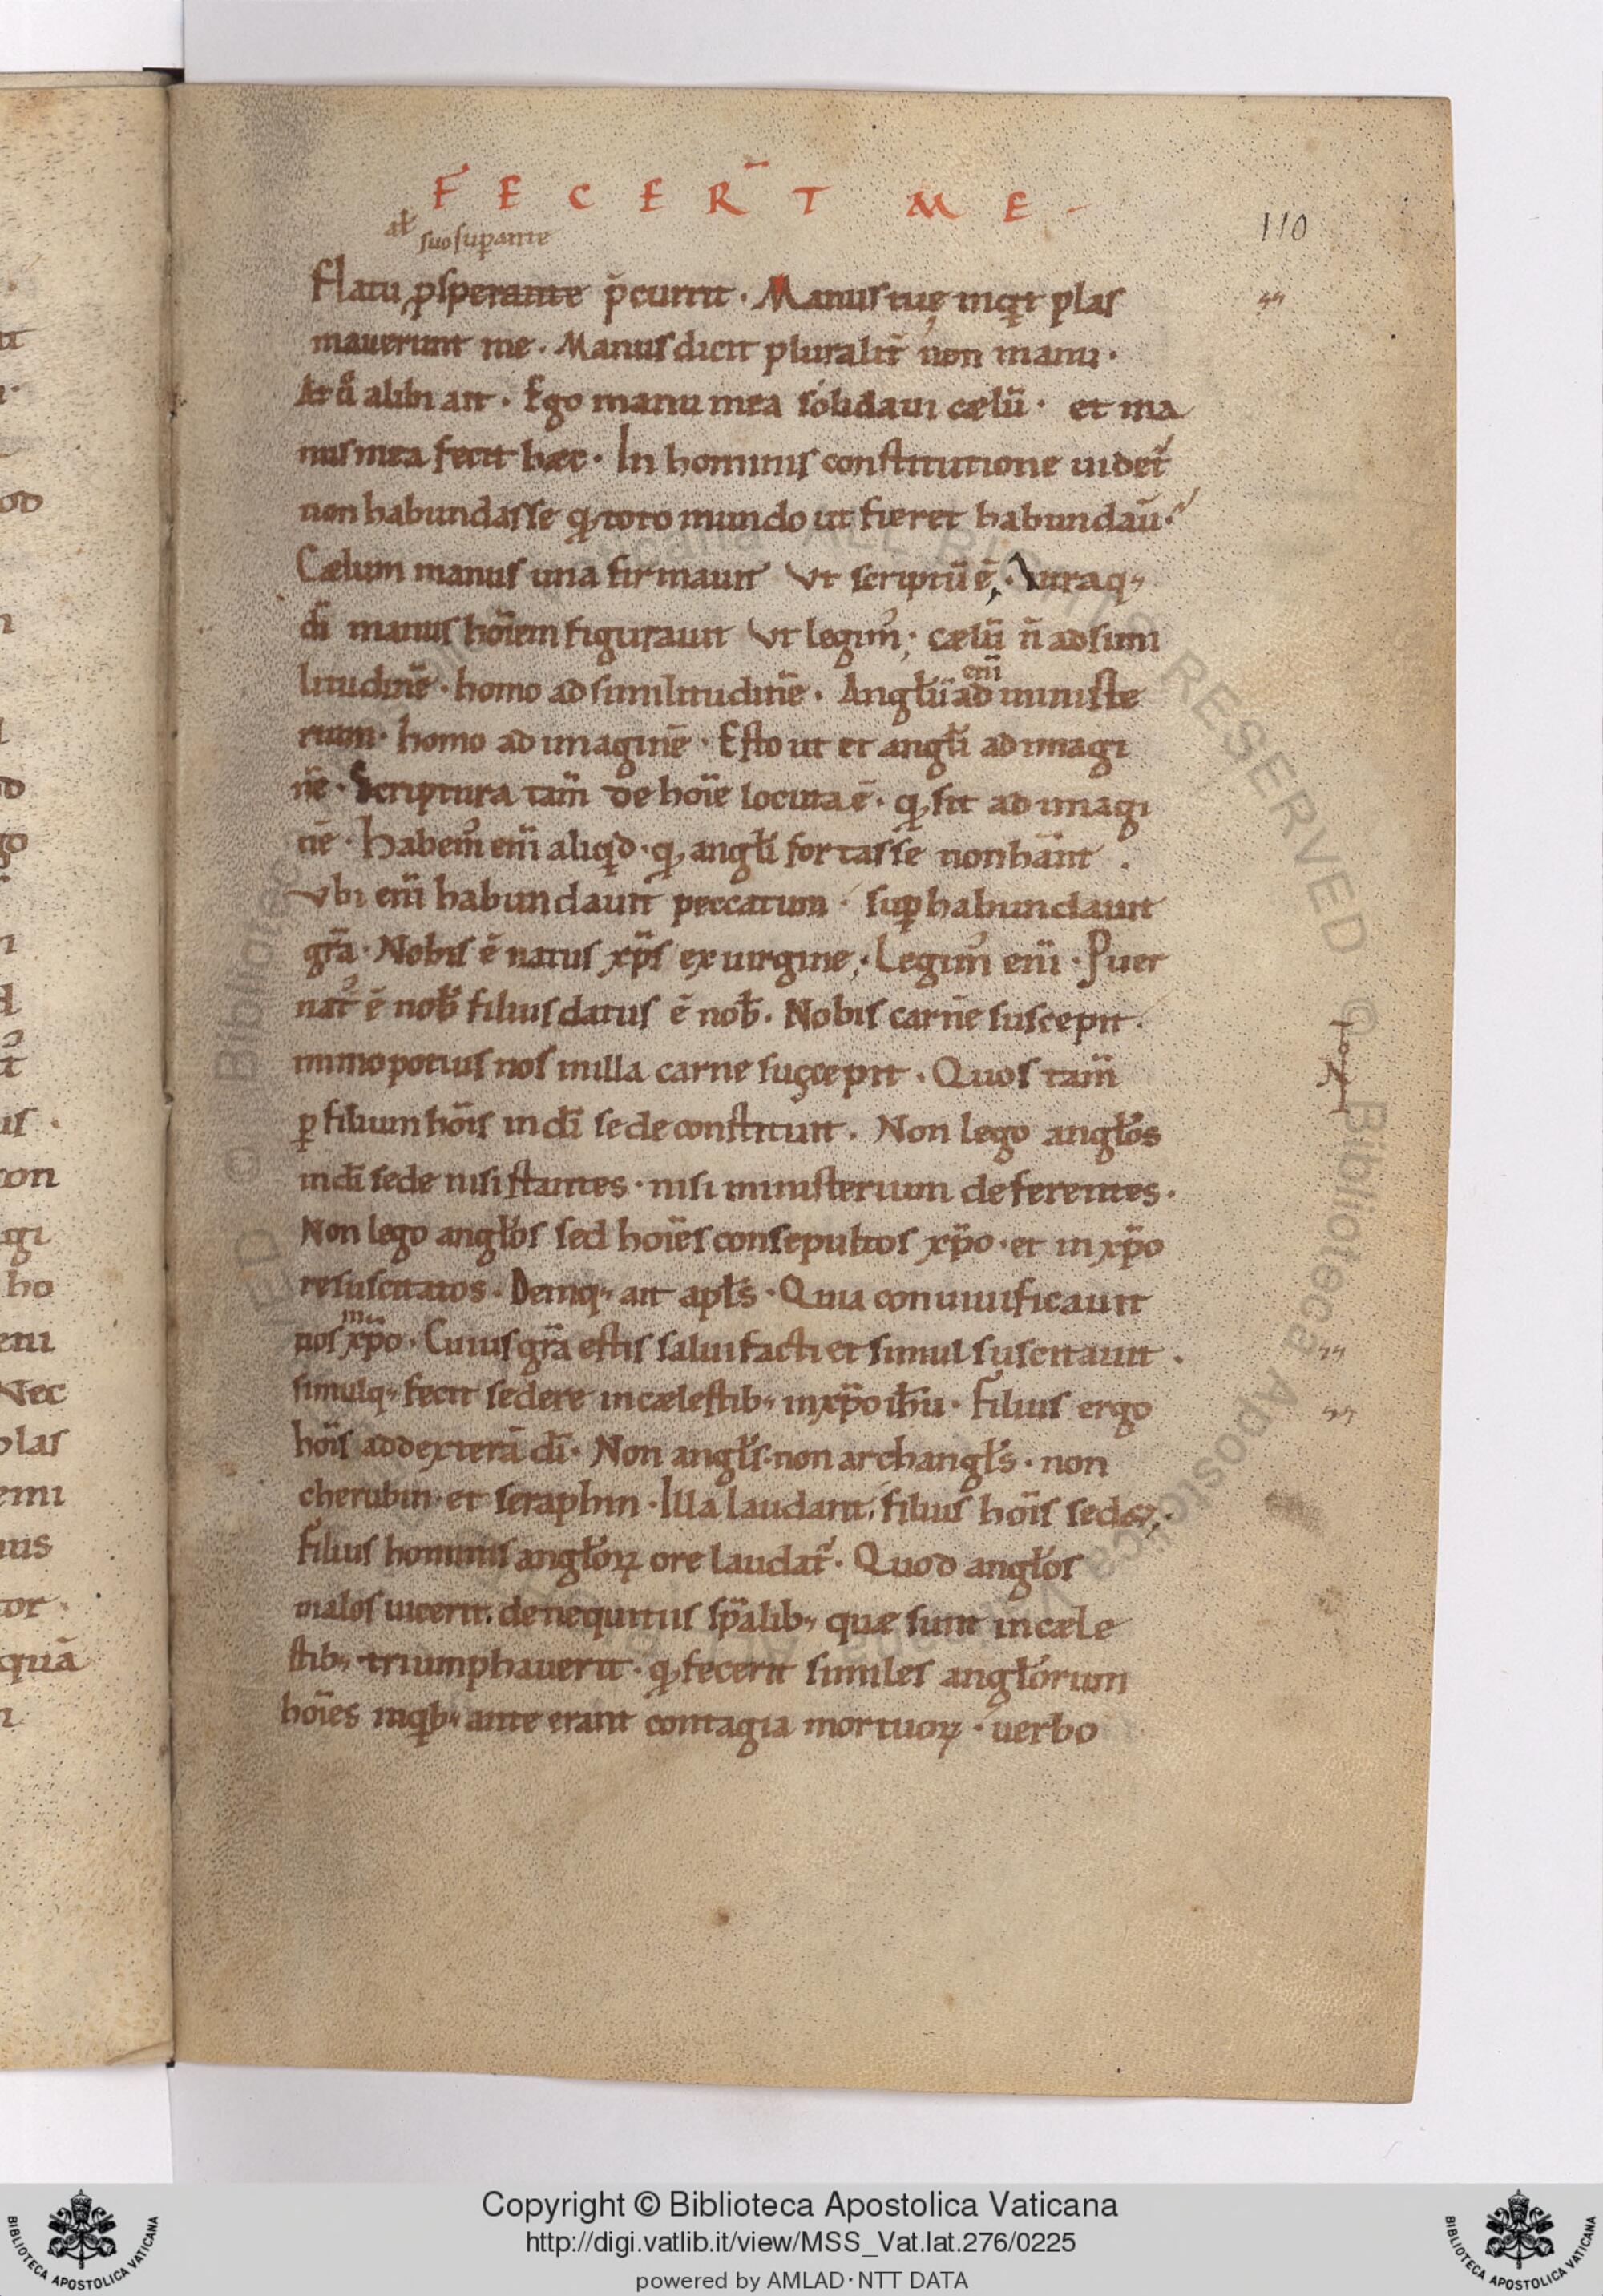 FECER̄T ME
110
ał suo suꝑante
flatu ꝓsperante p̄currit · Manus tuę inqͥt plas
mauerunt me · Manus dicit pluralit̄ non manu ·
At ů alibi ait · Ego manu mea solidaui cælū · et ma
nus mea fecit hæc · In hominis constitutione uidet᷑
non habundasse qͩ toto mundo ut fieret habundau̅ ·
Cælum manus una firmauit Vt scriptū ē; · Vtraq;
dī manus hōiem figurauit Vt legimꝰ; cælū n̄ ad simi
litudinē · homo ad similitudinē · Angłi enī ad ministe
rium · homo ad imaginē · Esto ut et angłi ad imagi
nē · Scriptura tam̄ de hōie locuta ē · qͩ sit ad imagi
nē · Habemꝰ enī aliqͥd · qͩ angłi fortasse non hān̄t ·
Vbi enī habundauit peccatum · suꝑhabundauit
gr̄a · Nobis ē natus xp̄s ex uirgine; · Legimꝰ enī · Puer
natꝰ ē nob̄ filius datus ē nob̄ · Nobis carnē suscepit ·
immo potius nos in illa carne suscepit · Quos tam̄
ꝑ filium hōis in dī sede constituit · Non lego angłos
in dī sede nisi stantes · nisi ministerium deferentes ·
Non lego angłos sed hōies consepultos xp̄o · et in xp̄o
resuscitatos · Demq; ait apłs · Quia conuiuificauit
nos in xp̄o · Cuius gr̄a estis salui facti et simul suscitauit ·
simulq; fecit sedere in cælestib; in xp̄o ih̄u · Filius ergo
hōis ad dexterā dī · Non angłs · non archangłs · non
cherubin · et seraphin · Illa laudant, filius hōis sedet; ·
Filius hominis angłoꝝ ore laudat᷑ · Quod angłos
malos uicerit · de nequitiis sp̄alib; quæ sunt in cæle
stib; triumphauerit · qͩ fecerit similes angłorum
hōies in qͥb; ante erant contagia mortuoꝝ · uerbo
Copyright © Biblioteca Apostolica Vaticana
http://digi.vatlib.it/view/MSS_Vat.lat.276/0225
powered by AMLAD·NTT DATA
BIBLIOTECA APOSTOLICA VATICANA
BIBLIOTECA APOSTOLICA VATICANA